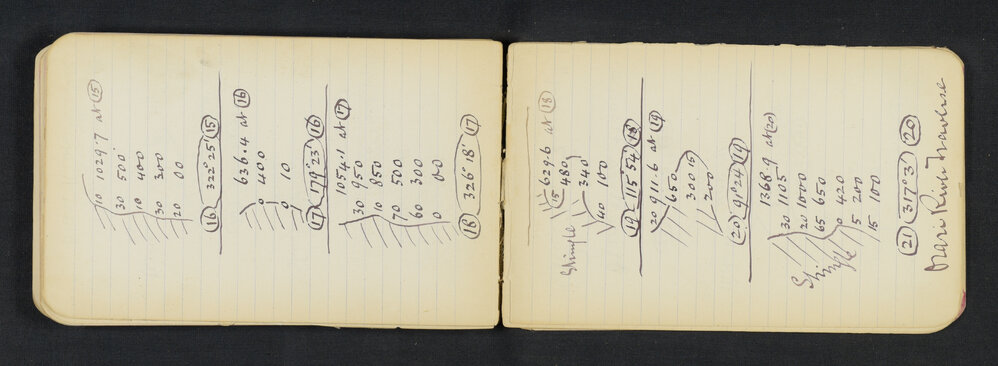 10 1029.7 at (15)
30 500
10 400
30 300
20 00
(16) 322° 25' (15)
636.4 at (16)
0 400
0 10
(17) 179° 23' (16)
1054.1 at (17)
30 950
10 850
70 500
60 300
0 00
(18) 326° 18' (17)
629.6 at (18)
15 480
Shingle 340
40 100
(19) 115° 54' (18)
20 911.6 at (19)
650
300 15
200
(20) 91° 24' (19)
1368.9 at (20)
30 1105
20 1000
65 650
Shingle 0 420
5 200
15 100
(21) 317° 3' (20)
Orari River Traverse